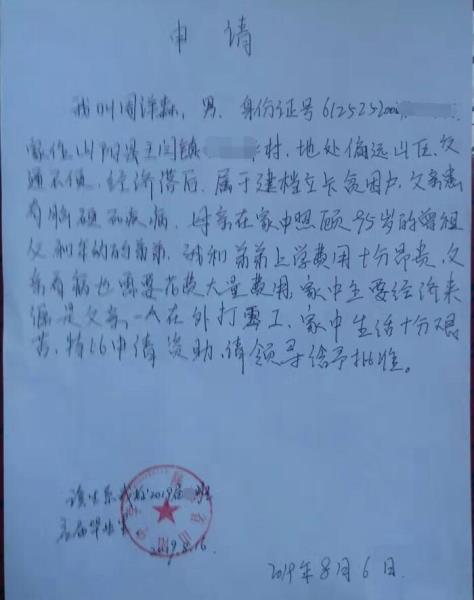 申请
我叫周洋森，男，身份证号6125252001
家住山阳县王闫镇 村，地处偏远山区，交
通不便，经济落后，属于建档立卡贫困户，父亲患
有脑硬 病，母亲在家中照顾95岁的曾祖
父和年幼的弟弟，我和弟弟上学费用十分昂贵，父
亲看病也需要花费大量费用，家中主要经济来
源是父亲一人在外打零工，家中生活十分艰
苦，特此申请资助，请领导给予批准。
该生系我校2019届 班
应届毕业生
2019.8.16
2019年8月6日